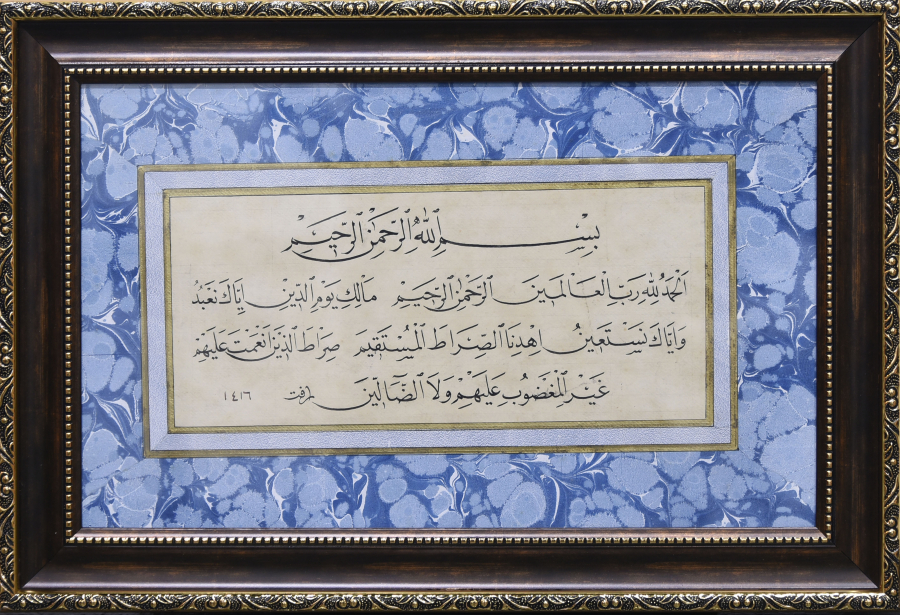 بِسْمِ اللّٰهِ الرَّحْمٰنِ الرَّحِيْمِ
اَلْحَمْدُ لِلّٰهِ رَبِّ الْعَالَمِيْنَ الرَّحْمٰنِ الرَّحِيْمِ مَالِكِ يَوْمِ الدِّيْنِ اِيَّاكَ نَعْبُدُ
وَاِيَّاكَ نَسْتَعِيْنُ اِهْدِنَا الصِّرَاطَ الْمُسْتَقِيْمَ صِرَاطَ الَّذِيْنَ اَنْعَمْتَ عَلَيْهِمْ
غَيْرِ الْمَغْضُوْبِ عَلَيْهِمْ وَلَا الضَّالِّيْنَ ١٤١٦